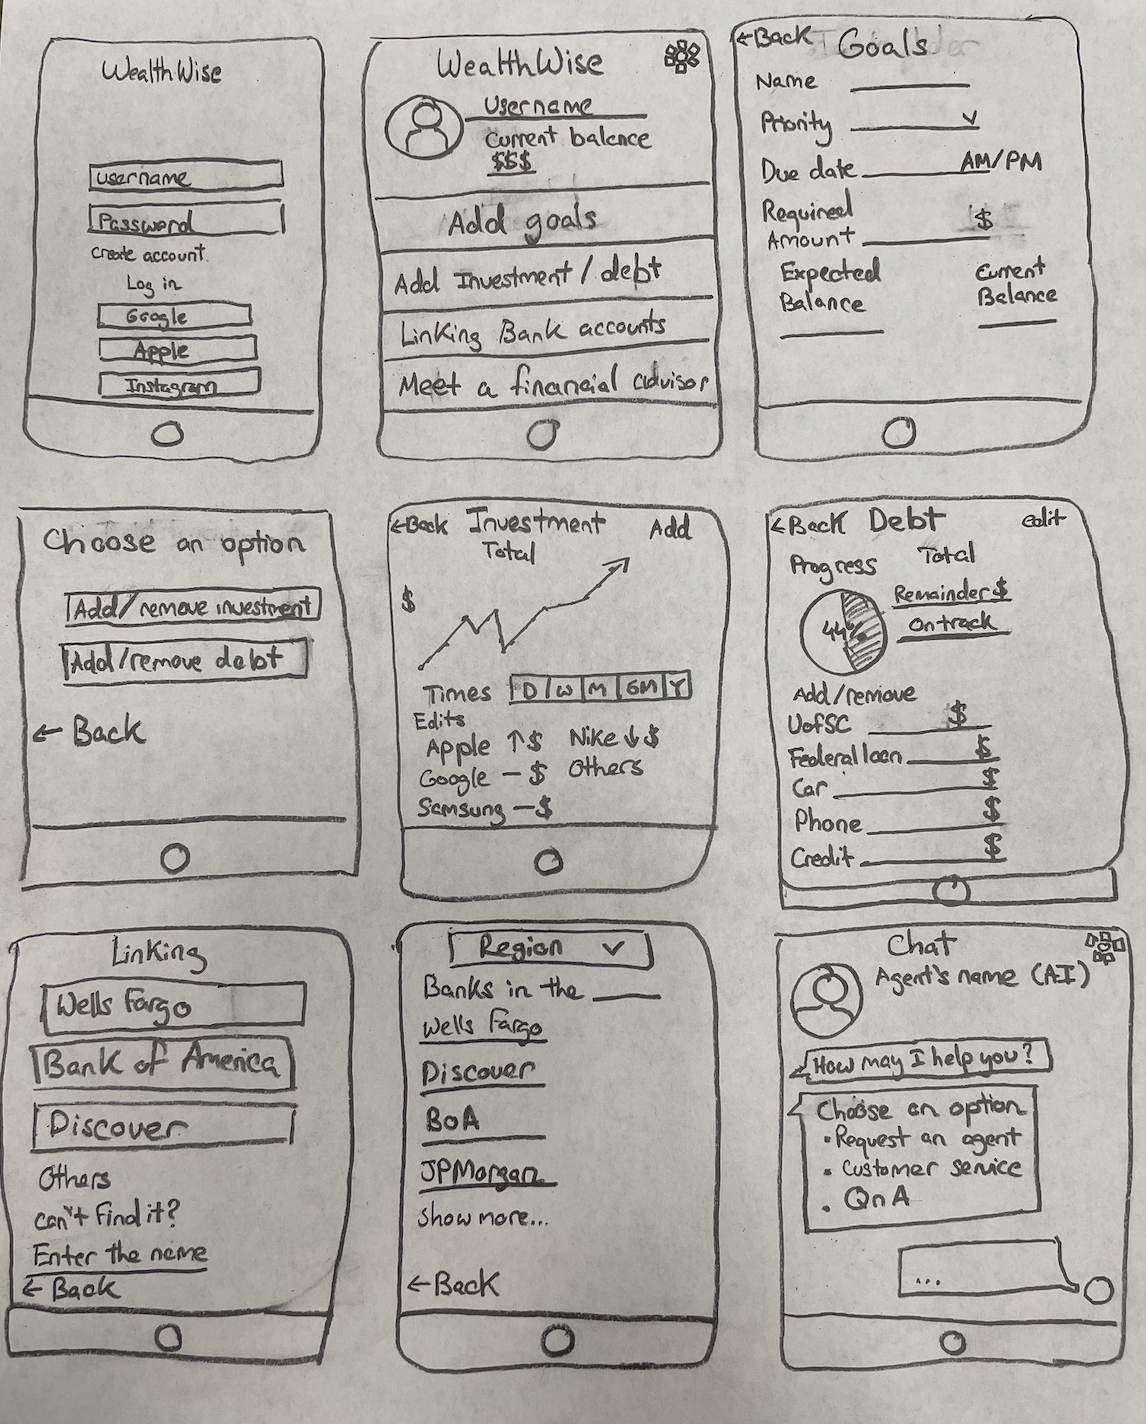 WealthWise
Username
Password
Create account
Log in
Google
Apple
Instagram
WealthWise
Username
Current balance
$$$
Add goals
Add Investment/debt
Linking Bank accounts
Meet a financial advisor
←Back Goals
Name
Priority
Due date AM/PM
Required
Amount $
Expected Current
Balance Balance
Choose an option
Add/remove investment
Add/remove debt
← Back
←Back Investment Add
Total
$
Times D W M 6M Y
Edits
Apple ↑$ Nike ↓$
Google — $ Others
Samsung — $
←Back Debt edit
Progress Total
Remainder $
44% On track
Add/remove
UofSC $
Federal loan $
Car $
Phone $
Credit $
Linking
Wells Fargo
Bank of America
Discover
Others
can't find it?
Enter the name
← Back
Region
Banks in the
Wells Fargo
Discover
BoA
JPMorgan
Show more...
←Back
Chat
Agent's name (AI)
How may I help you?
Choose an option
• Request an agent
• Customer service
• QnA
...